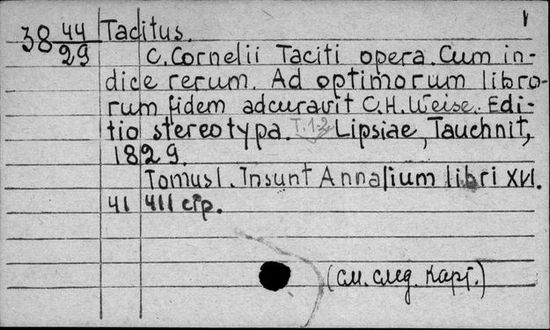 38 44/29 Tacitus.
C. Cornelii Taciti opera. Cum in-
dice rerum. Ad optimorum libro-
rum fidem adcuravit C.H. Weise. Edi-
tio stereotypa. T.1-2 Lipsiae, Tauchnit,
1829.
Tomus I. Insunt Annalium libri XVI.
41 411 стр.
(См. след. карт.)